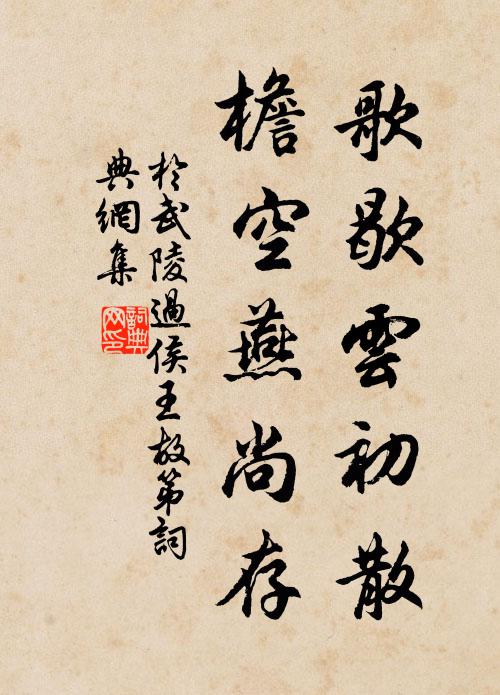 歌歇雲初散
檐空燕尚存
於武陵過侯王故第詞
典網集
詞典
網印